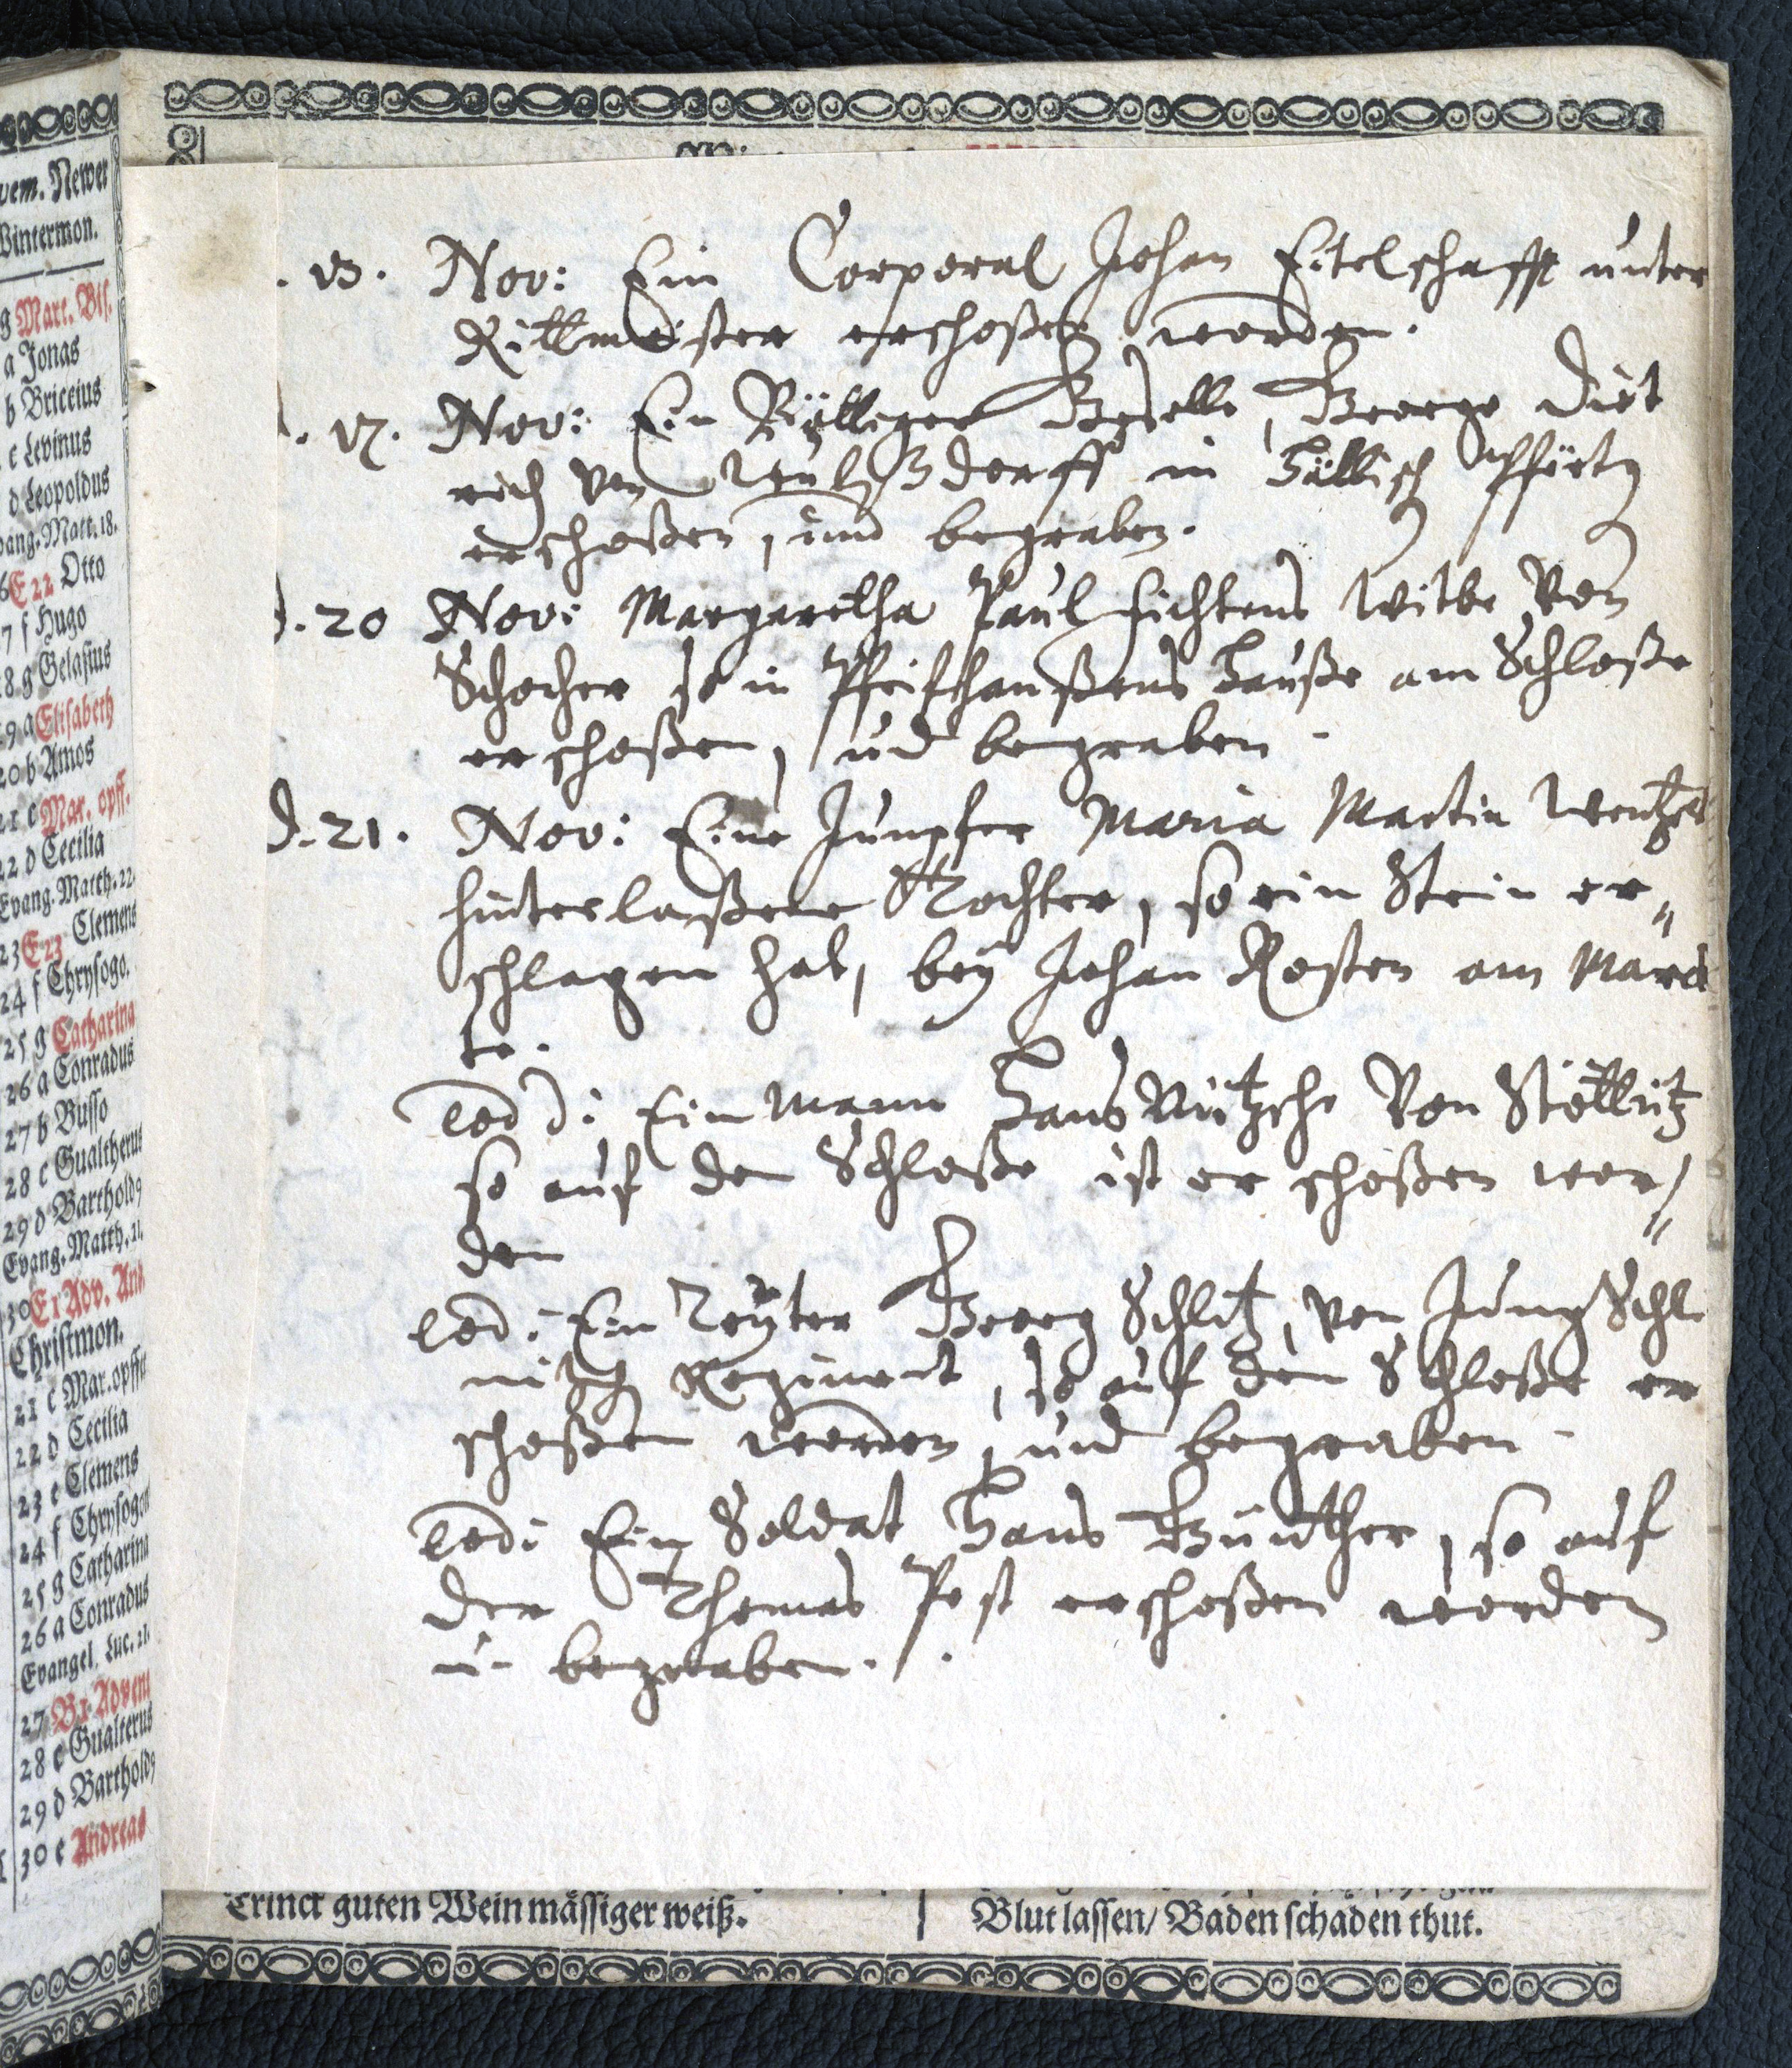 vem. Newer
Wintermon.
g Mart. Bis.
a Jonas
b Briccius
c Levinus
d Leopoldus
vang. Matt. 18.
6 E 22 Otto
7 f Hugo
8 g Gelasius
19 a Elisabeth
20 b Amos
21 c Mar. opff.
22 d Cecilia
Evang. Matth. 22.
23 E 23 Clemens
24 f Chrysogo.
25 g Catharina
26 a Conradus
27 b Busso
28 c Gualtherus
29 d Barthold9
Evang. Matth. 21.
30 E 1 Adv. And
Christmon.
21 c Mar. opffe
22 d Cecilia
23 e Clemens
24 f Chrysogon
25 g Catharina
26 a Conradus
Evangel. Luc. 21.
27 B 1 Advent
28 c Gualterus
29 d Barthold9
30 e Andreas
. 13. Nov: Ein Corporal Johan Eitelschafft unter
Rittmeister erschoßen worden.
. 17. Nov: Ein Geselle, George Diet
rich von dorff in Hällisch
erschoßen, und begraben.
d. 20 Nov: Margaretha Paul Fichtens Witbe Von
Schocher so in Pfeifhanßens Hauße am Schloße
erschoßen, und begraben.
d. 21. Nov: Eine Jungfer Maria Martin Wentzel
hinterlaßene Tochter, so ein Stein er„
schlagen hat, bey Johan Rosten am Marck
te.
eod d: Ein Mann Hans Nützsche Von Stötteritz
so auf den Schloße ist er schoßen wor„
den
eod: Ein Reyter Georg Schlitz, von Jung Schl
nitz Regiment, so auf den Schloße er
schoßen worden, und begraben.
eod: Ein Soldat Hans Günther, so auf
der Thomas Post erschoßen worden
u. begraben.
Trinck guten Wein mässiger weiß.
Blut lassen/ Baden schaden thut.